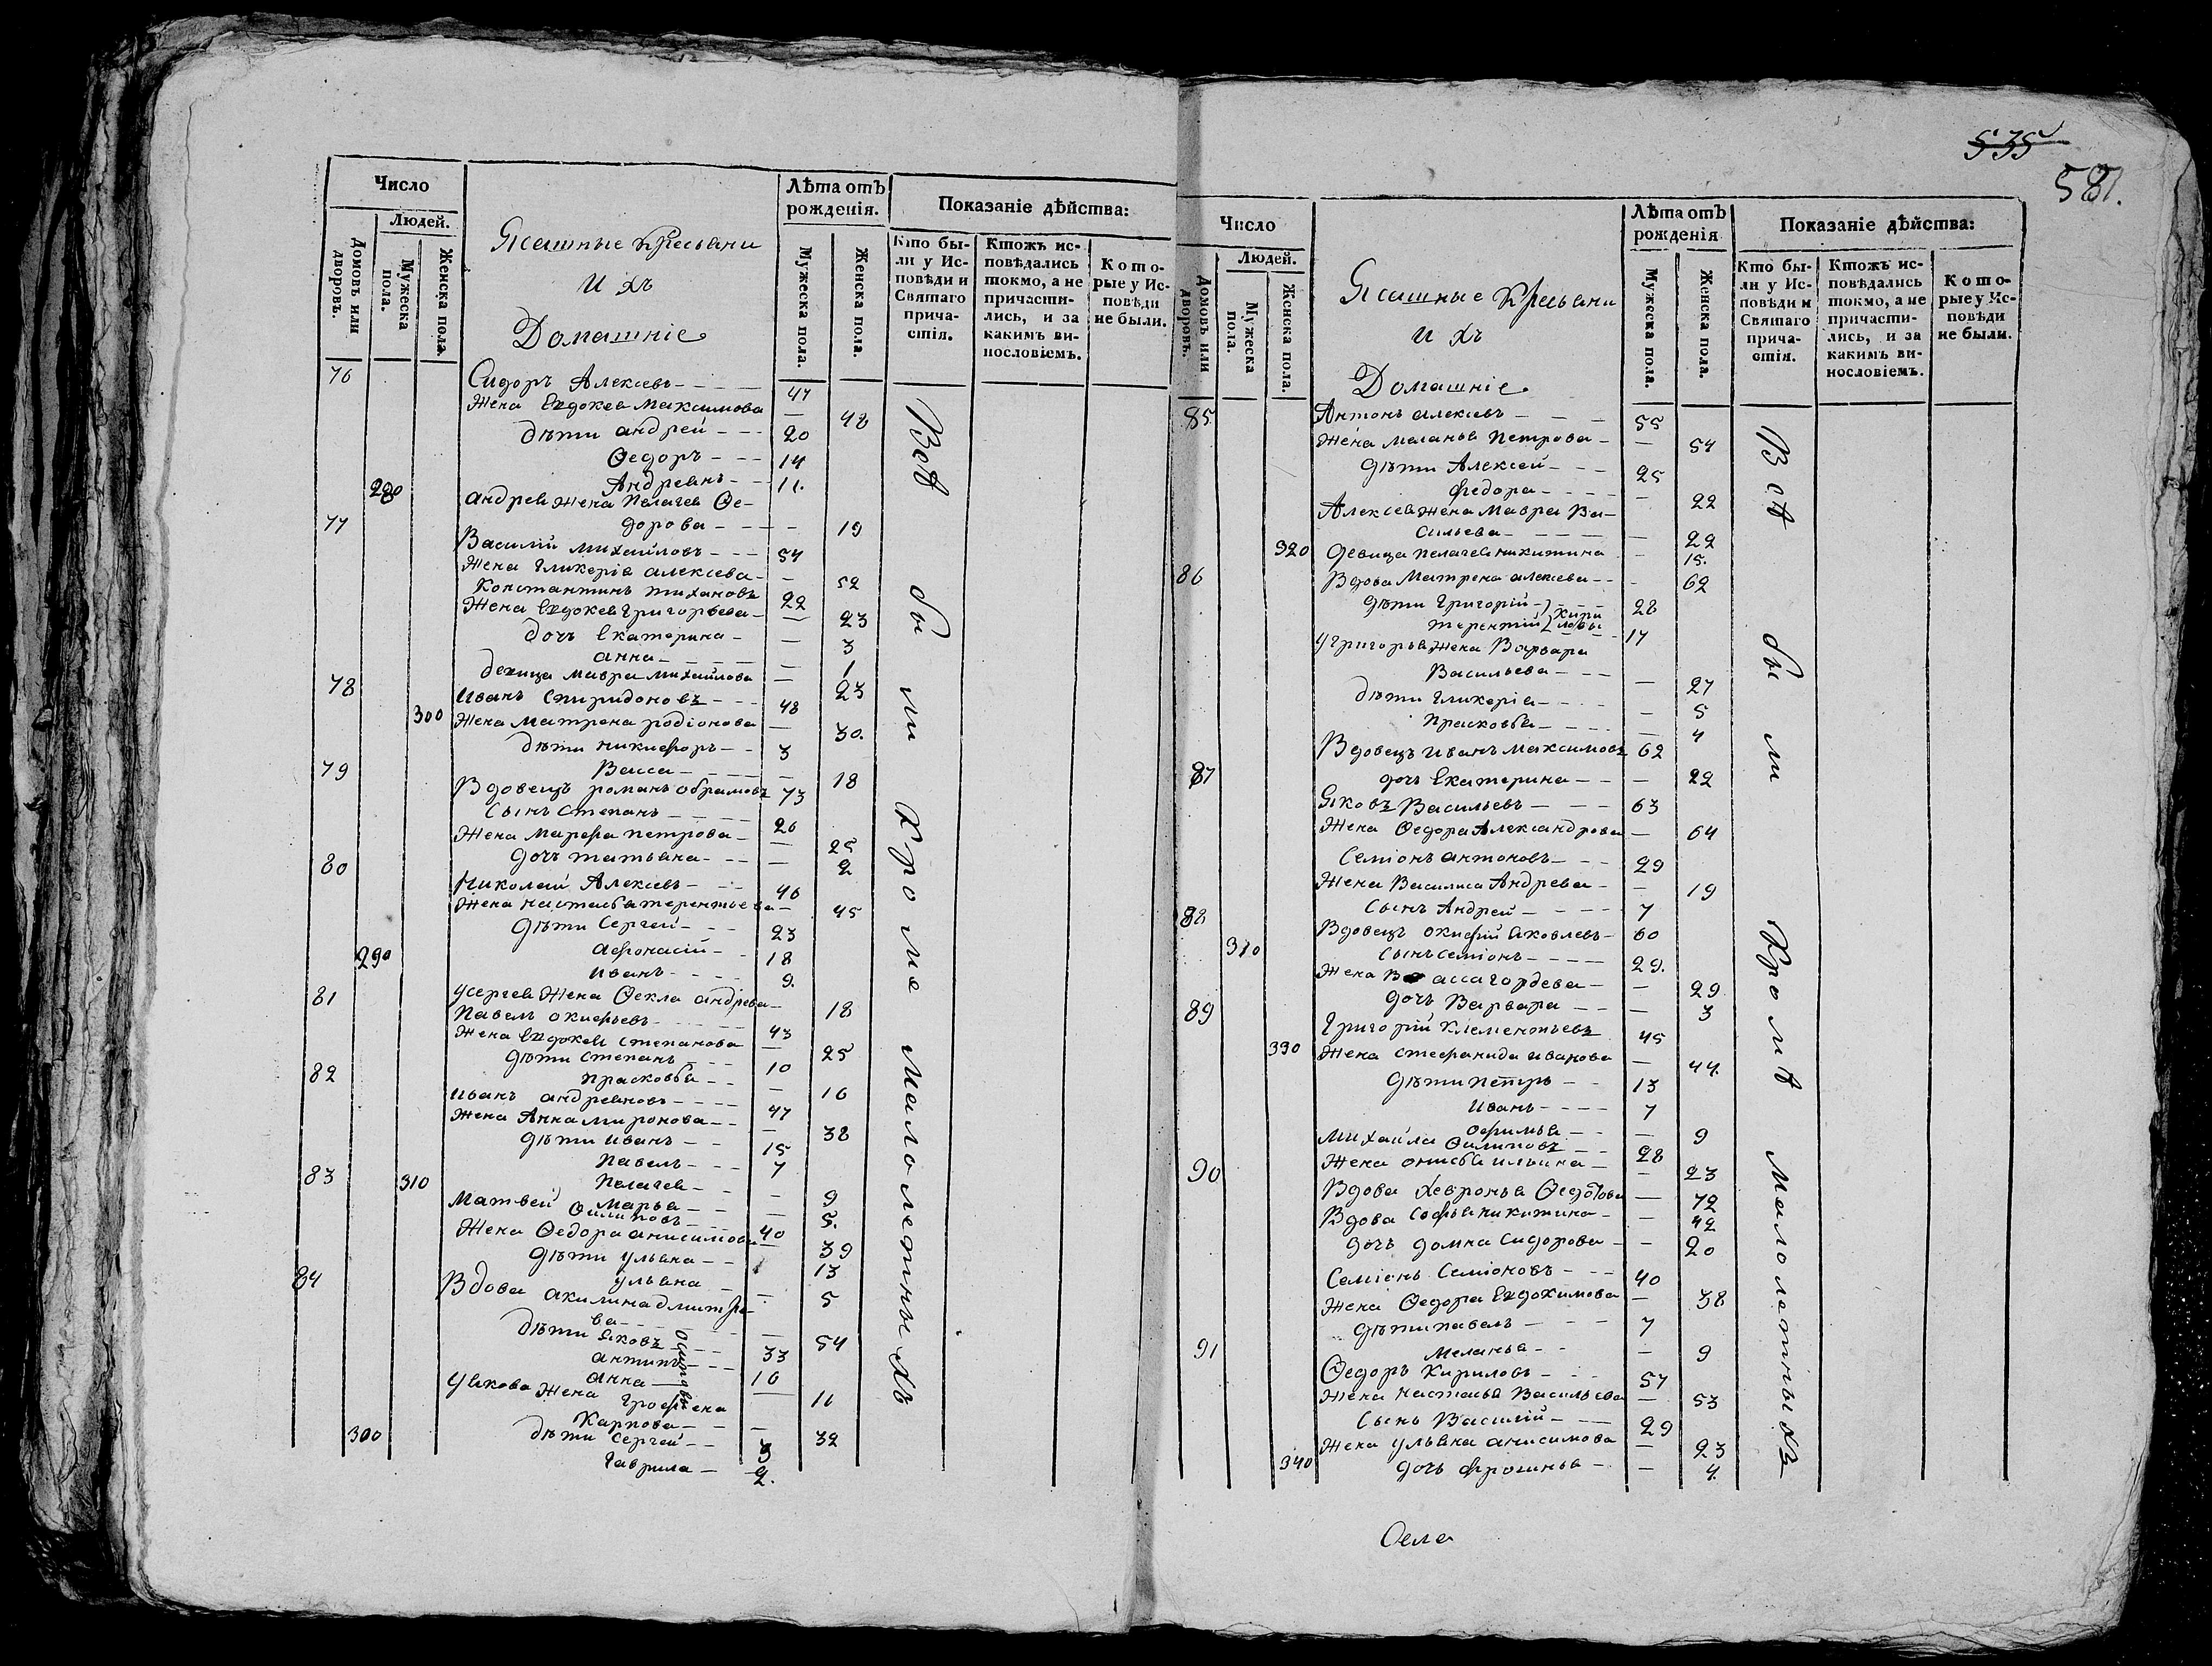 535
581.
Число
Людей.
Домовъ или дворовъ.
Мужеска пола.
Женска пола.
Ясашные Крестьяни
ихъ
Домашніе
Лѣта отъ рожденія.
Мужеска пола.
Женска пола.
Показаніе дѣйства:
Кто бы-
ли у Ис-
повѣди и
Святаго
прича-
стія.
Ктожъ ис-
повѣдались
токмо, а не
причасти-
лись, и за
какимъ ви-
нословіемъ.
Кото-
рые у Ис-
повѣди
не были.
76 Сидоръ Алексеевъ 47
Жена Евдокея Максимова — 48
дѣти андрей 20
Ѳедоръ 14
280 Андреянъ 11.
андрея жена Пелагея Ѳе-
дорова — 19
77 Василій михайловъ 54
Жена Гликерія алексеева — 52
Константинъ тихановъ 22
Жена Евдокея Григорьева — 23
дочь Екатерина — 3
анна — 1
девица мавра михайлова — 23
78 Иванъ Спиридоновъ 48
300 Жена матрена родіонова — 30.
дѣти никифоръ 3
Васса — 18
79 Вдовецъ романъ обрамовъ 73
Сынъ степанъ 26
Жена Марфа петрова — 25
дочь татьяна — 2
80 Николай Алексеевъ 46
Жена настасья терентьева — 45
дѣти Сергей 23
290 афонасій 18
иванъ 9.
усергея Жена Ѳекла андреева — 18
81 Павелъ окифьевъ 43
Жена Евдокея степанова — 25
дѣти степанъ 10
прасковья — 16
82 иванъ андреяновъ 47
Жена Анна миронова — 38
дѣти иванъ 15
Павелъ 7
310 Пелагея — 9
Марья — 5.
83 Матвей Филиповъ 40
Жена Ѳедора анисимова — 39
дѣти ульяна 13
ульяна — 5
84 Вдова акилина дмитре-
ва — 54
дѣти Яковъ 33
антипъ 16
Осиповы
анна — 11
уякова Жена Грофена
Карпова — 32
300 дѣти Сергей 3
гаврила 2.
Всѣ были Кроме малолетныхъ
Число
Людей.
Домовъ или дворовъ.
Мужеска пола.
Женска пола.
Ясашные Крестьяни
ихъ
Домашніе
Лѣта отъ рожденія
Мужеска пола.
Женска пола.
Показаніе дѣйства:
Кто бы-
ли у Ис-
повѣди и
Святаго
прича-
стія.
Ктожъ ис-
повѣдались
токмо, а не
причасти-
лись, и за
какимъ ви-
нословіемъ.
Кото-
рые у Ис-
повѣди
не были.
85 Антонъ алексеевъ 55
Жена меланья Петрова — 54
дѣти Алексей 25
федора — 22
Алексея жена Мавра Ва-
сильева — 22
320 девица пелагея никитина — 15.
86 Вдова Матрена алексеева — 62
дѣти григорій 28
терентій 17
Кириловы
уГригорья Жена Варвара
Васильева — 27
дѣти гликерія — 5
Прасковья — 4
87 Вдовецъ иванъ максимовъ 62
дочь Екатерина — 22
Яковъ Васильевъ 63
Жена Ѳедора Александрова — 64
Семіонъ антоновъ 29
Жена Василиса Андреева — 19
Сынъ Андрей 7
88 Вдовецъ окифій яковлевъ 60
310 Сынъ семіонъ 29.
Жена Васса гордеева — 29
дочь Варвара — 3
89 Григорій Клементьевъ 45
330 Жена стефанида иванова — 44.
дѣти петръ 13
иванъ 7
офимья — 9
михайла Филиповъ 28
Жена онисья ильина — 23
90 Вдова хевронья Ѳедотова — 72
Вдова Софья никитина — 42
дочь домна сидорова — 20
Семіонъ Семіоновъ 40
Жена Ѳедора Евдокимова — 38
дѣти павелъ 7
меланья — 9
91 Ѳедоръ Кириловъ 57
Жена настасья Васильева — 53
Сынъ Василій 29
Жена ульяна анисимова — 23
340 дочь фросинья — 4.
Всѣ были Кромѣ малолетныхъ
Села